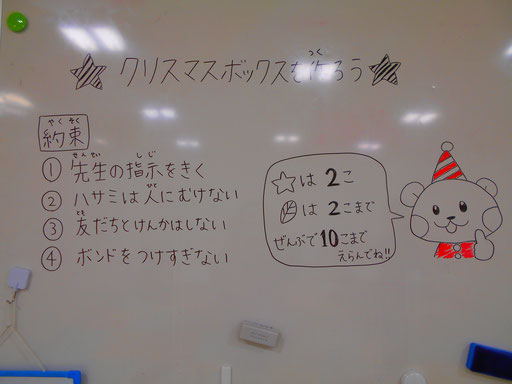 クリスマスボックスを作ろう
約束
① 先生の指示をきく
② ハサミは人にむけない
③ 友だちとけんかはしない
④ ボンドをつけすぎない
☆は2こ
は2こまで
ぜんぶで10こまで
えらんでね!!